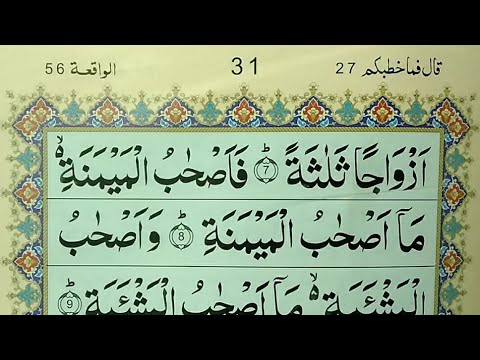 قال فما خطبكم 27 31 الواقعة 56
اَزْوَاجًا ثَلٰثَةً ؕ‏ 7 فَاَصْحٰبُ الْمَيْمَنَةِ ۙ۬
مَاۤ اَصْحٰبُ الْمَيْمَنَةِ ؕ‏ 8 وَاَصْحٰبُ
الْمَشْـَٔمَةِ ۙ۬ مَاۤ اَصْحٰبُ الْمَشْـَٔمَةِ ؕ‏ 9